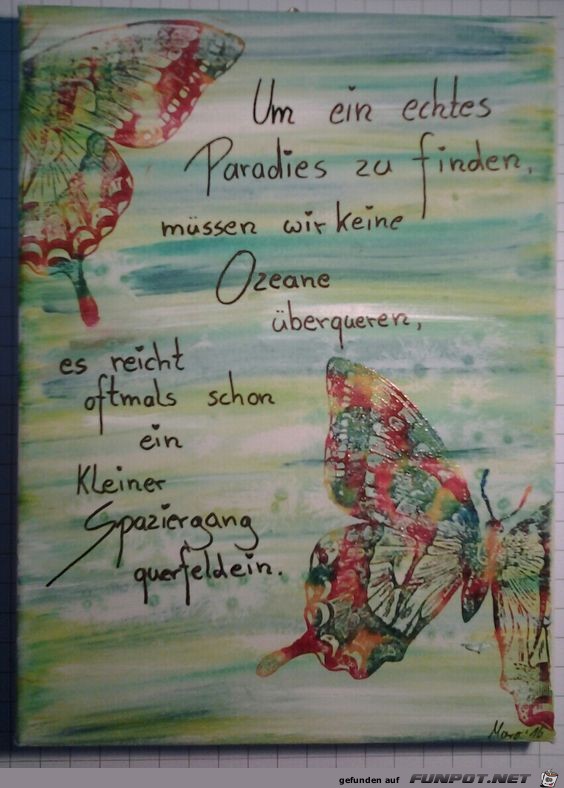 Um ein echtes
Paradies zu finden,
müssen wir keine
Ozeane
überqueren,
es reicht
oftmals schon
ein
kleiner
Spaziergang
querfeldein.
gefunden auf FUNPOT.NET